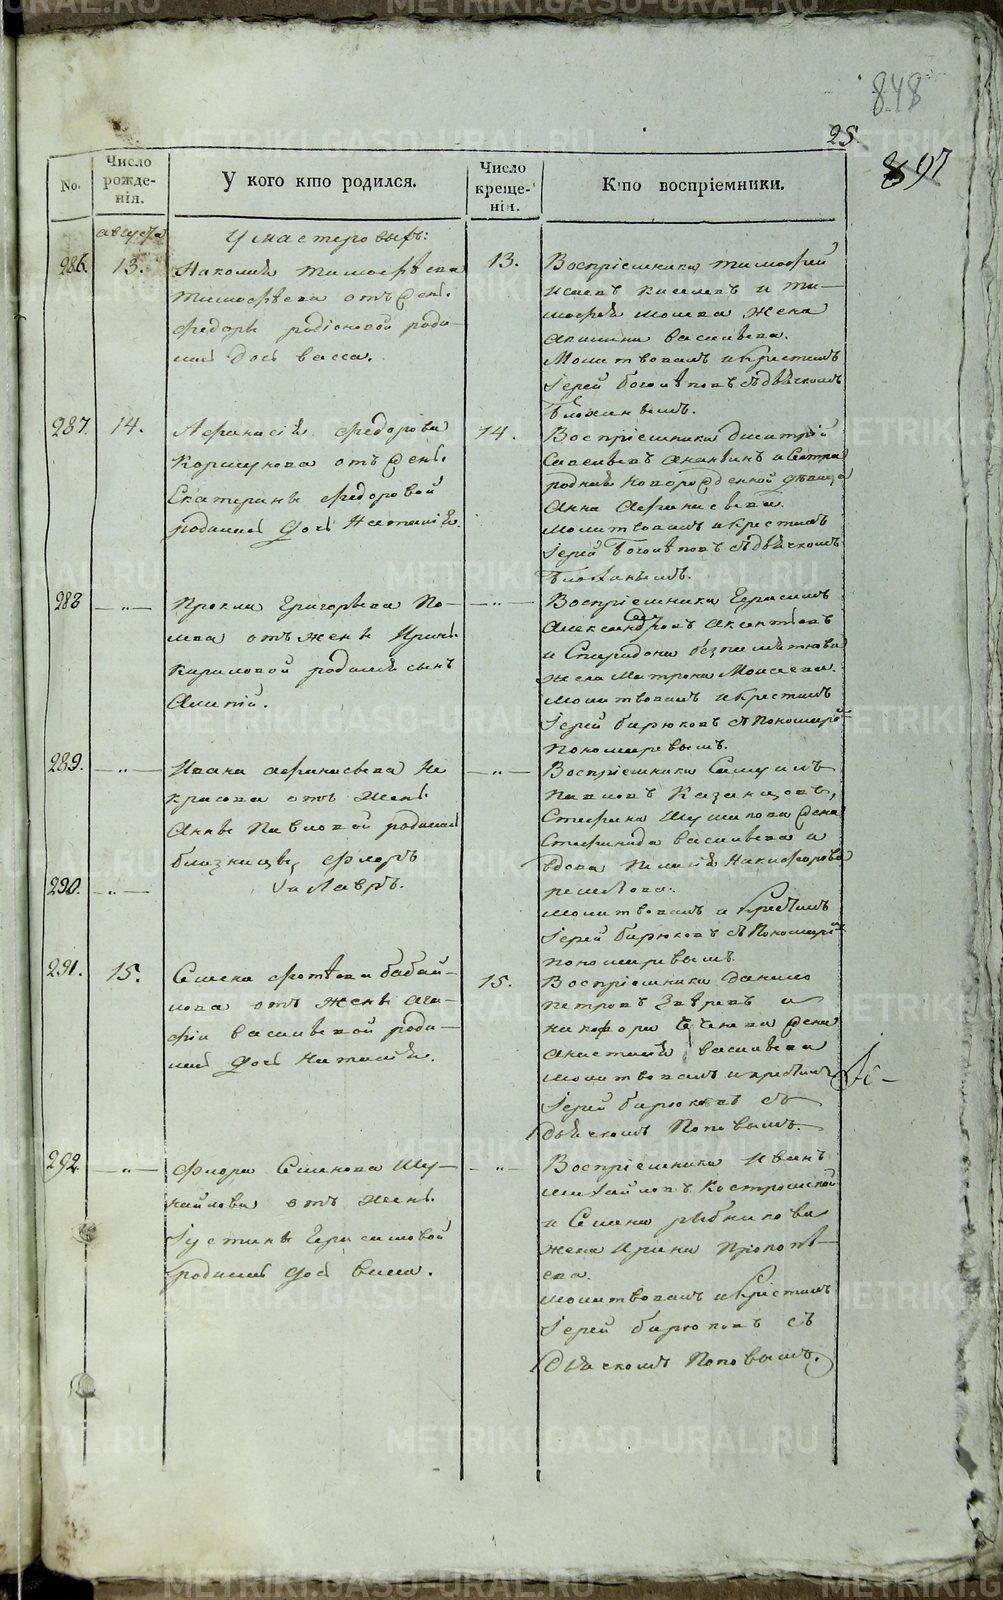 848
25.
897
No.
Число рожде-нія.
У кого кто родился.
Число креще-нія.
Кто воспріемники.
августа
У мастеровыхъ:
286.
13.
Тимофѣева
Тимофѣева отъ жены
Федоры родіоновой роди-
лась дочь васса.
13.
Воспріемники тимофей
исаевъ киселевъ и ти-
жена
васильева.
Молитвовалъ и крестилъ
Іерей съ дьячкомъ
287.
14.
Афанасія Федорова
Коршунова отъ жены
Екатерины Федоровой
родилась дочь Наталія.
14.
Воспріемники дмитрій
Савельевъ Ананьинъ и сестра
родная новорожденной дѣвица
Анна Афанасьева.
молитвовалъ и крестилъ
Іерей съ дьячкомъ
288
— „ —
Прокла Григорьева По-
пова отъ жены Ирины
Кириловой родился сынъ
— „ —
Воспріемники Герасимъ
Александровъ Аксентьевъ
и Спиридона
жена Матрона Моисеева.
молитвовалъ и крестилъ
Іерей бирюковъ съ Пономаремъ
пономаревымъ.
289.
— „ —
Ивана афанасьева Не
красова отъ жены
Анны Павловой родились
близнецы, Флоръ
и Лавръ.
290.
— „ —
— „ —
Воспріемники Самуилъ
павловъ Казанцовъ,
Стефана Шумилова жена
Стефанида васильева и
вдова Пелагія Никифорова
молитвовалъ и крестилъ
Іерей бирюковъ съ Пономаремъ
пономаревымъ.
291.
15.
Семена Фотѣева бабай-
лова отъ жены Ага-
фіи васильевой роди-
лась дочь Наталія.
15.
Воспріемники Данило
петровъ Звѣревъ и
жена
Анастасія васильева
молитвовалъ и крестилъ
Іерей бирюковъ съ
Дьячкомъ Поповымъ.
292
— „ —
Флора Семенова Шу-
майлова отъ жены
Іустины Герасимовой
родилась дочь васса.
— „ —
Воспріемники Иванъ
михайловъ Костромской
и Семена рыбникова
жена Ирина Прокопь-
ева.
молитвовалъ и крестилъ
Іерей бирюковъ съ
Дьячкомъ Поповымъ.
METRIKI.GASO-URAL.RU